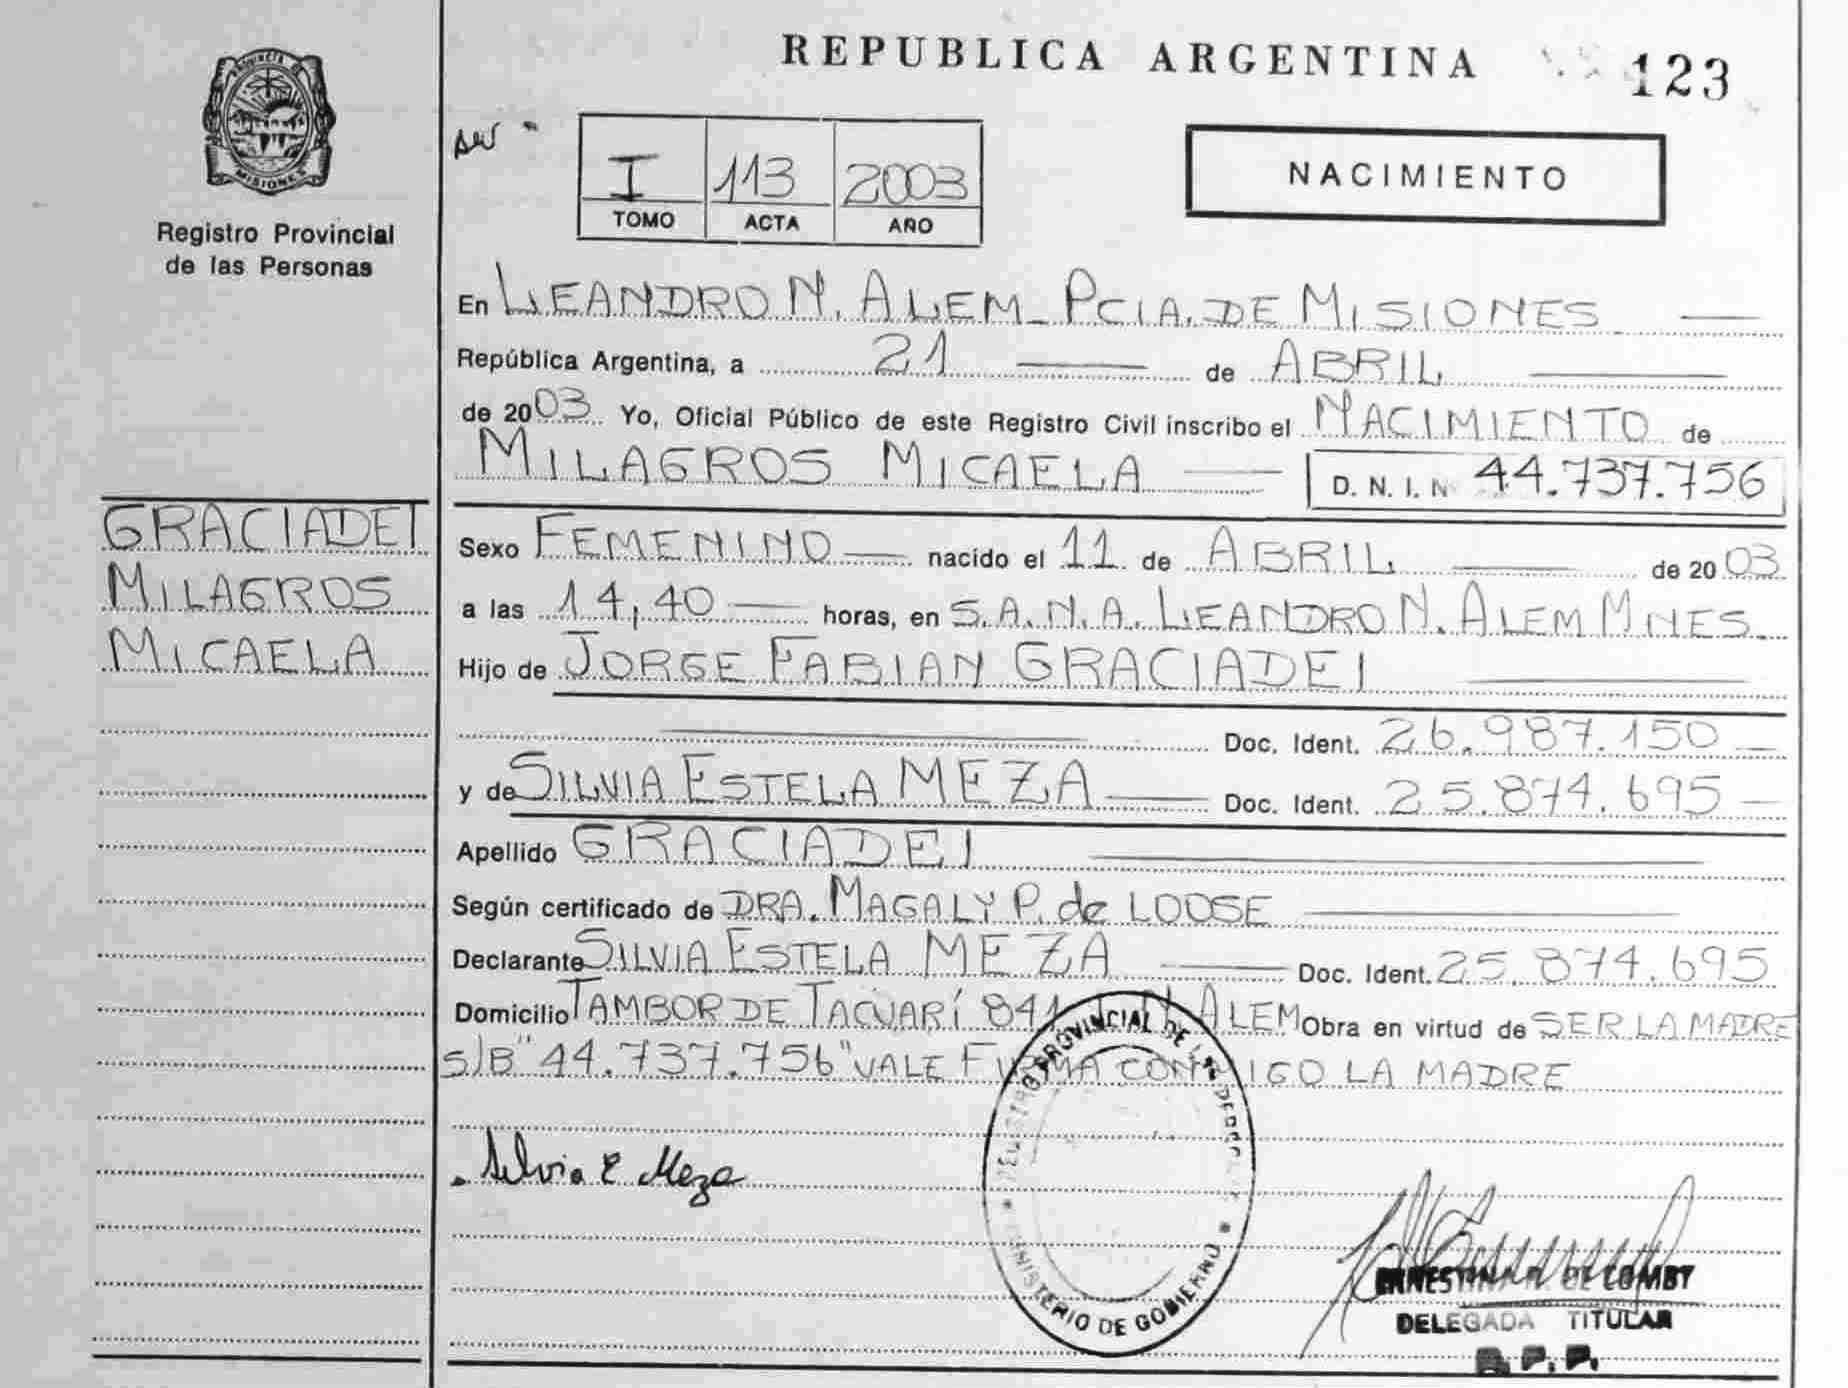 REPUBLICA ARGENTINA
123
PROVINCIA DE
MISIONES
Registro Provincial
de las Personas
I 113 2003
TOMO ACTA AÑO
NACIMIENTO
En LEANDRO N. ALEM_ PCIA. DE MISIONES
República Argentina, a 21 de ABRIL
de 2003 Yo, Oficial Público de este Registro Civil inscribo el NACIMIENTO de
MILAGROS MICAELA D. N. I. N 44.737.756
GRACIADEI
MILAGROS
MICAELA
Sexo FEMENINO nacido el 11 de ABRIL de 2003
a las 14,40 horas, en S.A.N.A. LEANDRO N. ALEM MNES.
Hijo de JORGE FABIAN GRACIADEI
Doc. Ident. 26.987.150
y de SILVIA ESTELA MEZA Doc. Ident. 25.874.695
Apellido GRACIADEI
Según certificado de DRA. MAGALY P. de LOOSE
Declarante SILVIA ESTELA MEZA Doc. Ident. 25.874.695
Domicilio TAMBOR DE TACUARÍ 841 N ALEM Obra en virtud de SER LA MADRE
S/B "44.737.756" VALE FIRMA CONMIGO LA MADRE
Silvia E Meza
REGISTRO PROVINCIAL DE LAS PERSONAS
MINISTERIO DE GOBIERNO
DE LOMBY
DELEGADA TITULAR
R. P. P.